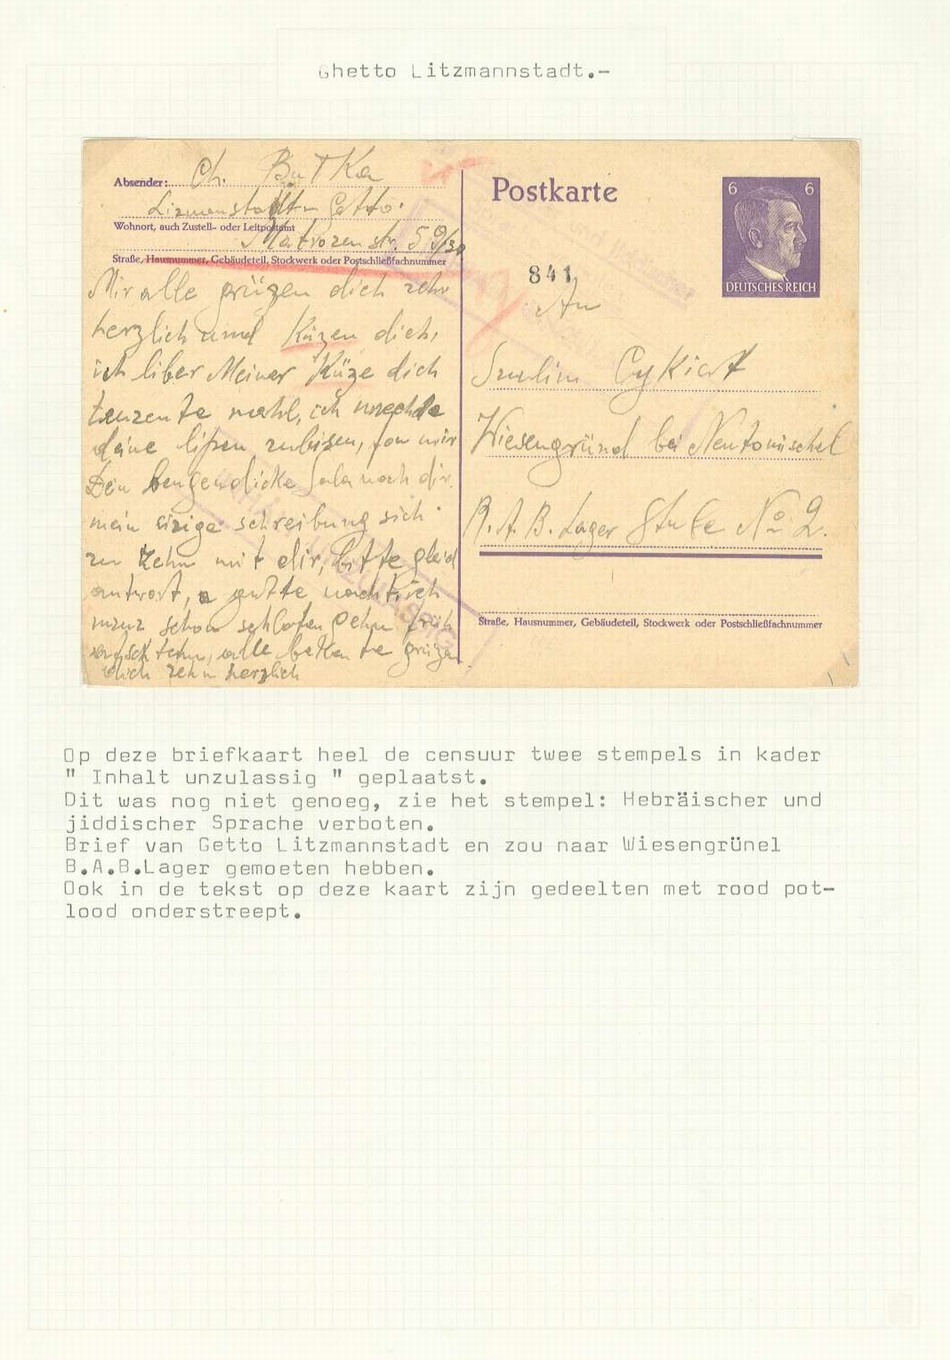 Ghetto Litzmannstadt.-
Absender: Ch. Butka
Getto.
Wohnort, auch Zustell- oder Leitpostamt
Matrozenstr.
Straße, Hausnummer, Gebäudeteil, Stockwerk oder Postschließfachnummer
Mir alle grüzen dich zehr
herzlich und Küzen dich,
ich liber Meiner Küze dich
tauzente mahl, ich mechte
deine lipen
Sala nach dir.
mein schreibung sich
zu Zehn mit dir, bitte gleich
antwort, a gutte nacht ich
muz schon schlafen gehn früh
alle bekante grüzen
dich zehn herzlich
Postkarte
6 6
DEUTSCHES REICH
841
An
Szulim Cykiert
Wiesengründ bei Neutomischel
R.A.B. Lager Stube No 2.
Straße, Hausnummer, Gebäudeteil, Stockwerk oder Postschließfachnummer
Op deze briefkaart heel de censuur twee stempels in kader
" Inhalt unzulassig " geplaatst.
Dit was nog niet genoeg, zie het stempel: Hebräischer und
jiddischer Sprache verboten.
Brief van Getto Litzmannstadt en zou naar Wiesengrünel
B.A.B.Lager gemoeten hebben.
Ook in de tekst op deze kaart zijn gedeelten met rood pot-
lood onderstreept.